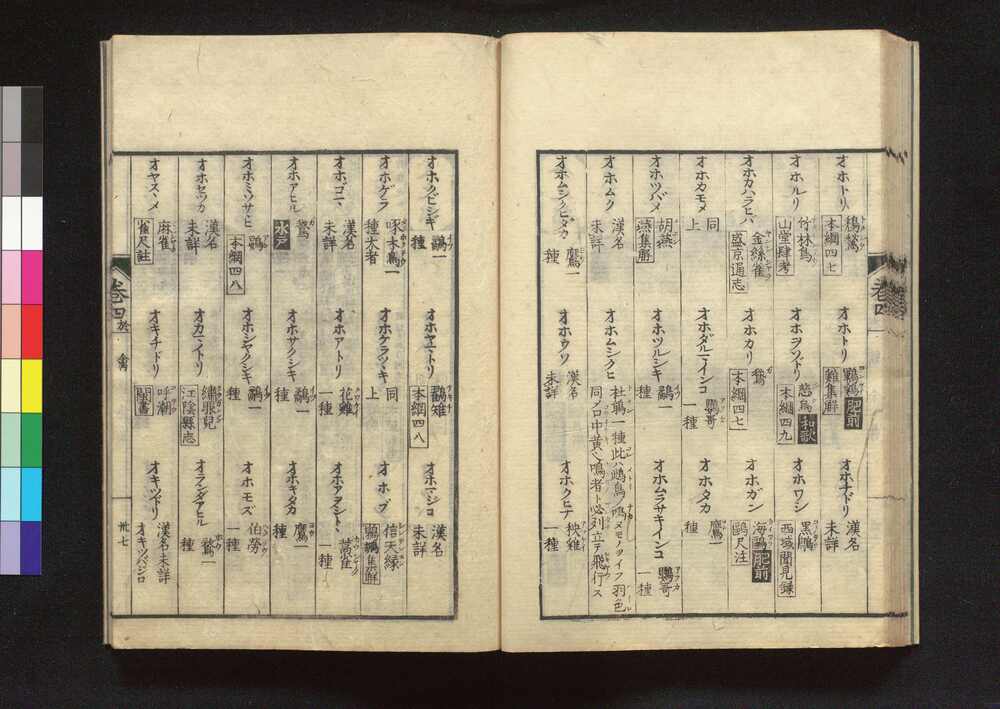 オホトリ 鵚鶖 本綱四七
オホトリ 鸛鶴 肥前 雞集解
オホチドリ 漢名未詳
オホルリ 竹林鳥 山堂肆考
オホヲソドリ 慈烏 和歌 本綱四九
オホワシ 黒鵰 西域聞見録
オホカハラヒハ 金絲雀 盛京通志
オホカリ 鵞 本綱四七
オホガン 海鵞 肥前 鴎尺注
オホカモメ 同上
オホダルマインコ 鸚哥一種
オホタカ 鷹一種
オホツバメ 胡燕 燕集解
オホツルシキ 鷸一種
オホムラサキインコ 鸚哥一種
オホムク 漢名未詳
オホムシクヒ 杜鵑一種此ハ鴟鳥ノ鳴メモノヲイフ羽色
同ノ口中黄ニ鳴者ト必列立テ飛行ス
オホムシクヒタカ 鷹一種
オホウソ 漢名未詳
オホクヒナ 秧雞一種
巻四
オホクビシギ 鷸一種
オホヤマトリ 鸐雉 本綱四八
オホマシコ 漢名未詳
オホゲラ 啄木鳥一種大者
オホケラツヽキ 同上
オホブ 信天縁 鸕鷀集解
オホゴマ 漢名未詳
オホアトリ 花雞一種
オホアヲシトヽ 蒿雀一種
オホアヒル 鶩 水戸
オホサクシキ 鷸一種
オホキタカ 鷹一種
オホミソサヾヒ 鷃 本綱四八
オホシヤクシキ 鷸一種
オホモズ 伯勞一種
オホセツカ 漢名未詳
オカマイトリ 繍眼兒 江陰縣志
オランダアヒル 鶩一種
オヤスヾメ 麻雀 雀尺註
オキチドリ 呼潮 閩書
オキツドリ 漢名未詳 オキツバシロ
巻四 於 禽 卅七